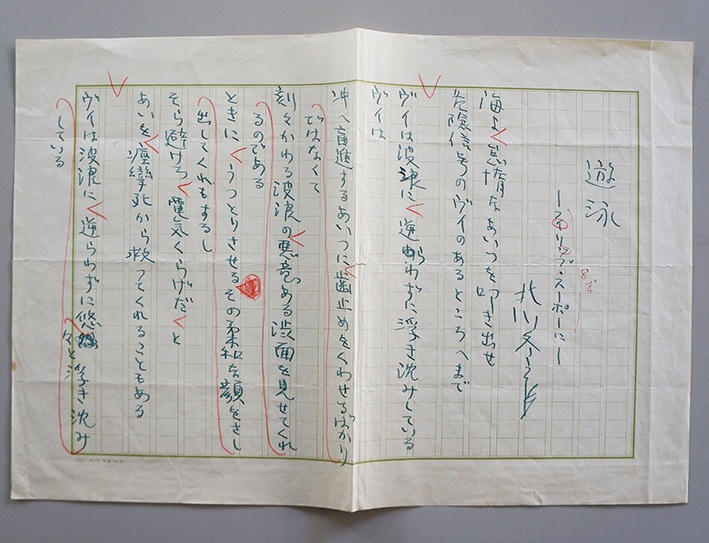 遊泳
―フィリップ・スーポーに―
北川冬彦
海よ 怠惰なあいつを叩き出せ
危険信号のヴイのあるところへまで
ヴイは波浪に 逆らわずに浮き沈みしている
ヴイは
沖へ盲進するあいつに歯止めをくわせるばかり
ではなくて
刻々かわる波浪の悪意ある渋面を見せてくれ
るのである
ときに うっとりさせるその柔和な顔をさし
出してくれもするし
そら避けろ 電気くらげだ と
あいを 痙攣死から救ってくれることもある
ヴイは波浪に 逆らわずに悠々と浮き沈み
している